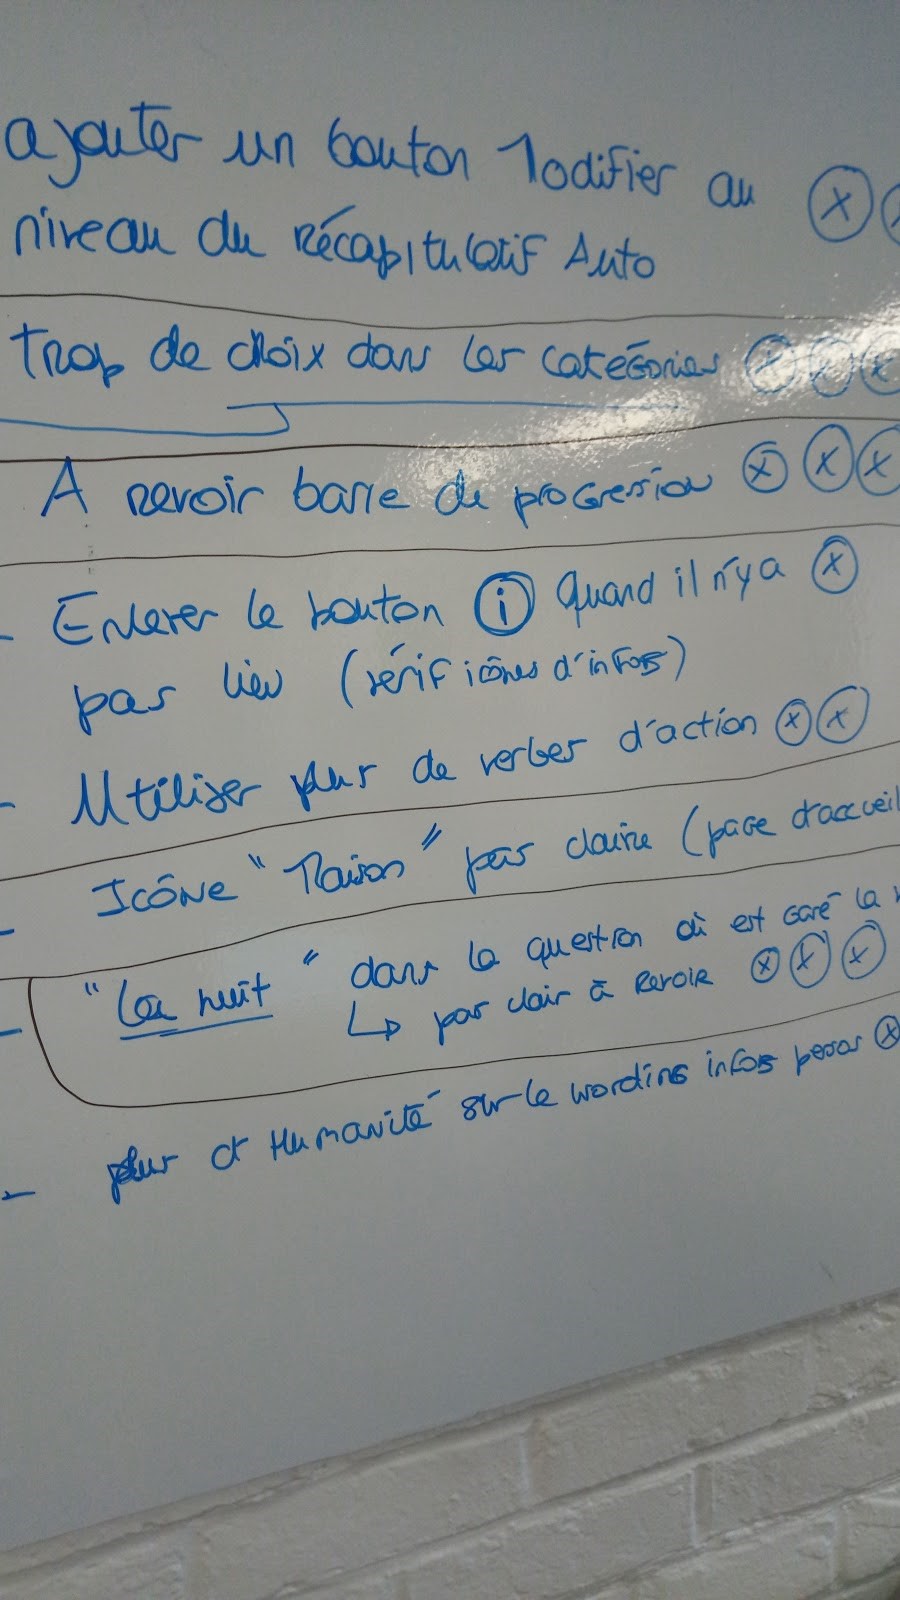 ajouter un bouton Modifier au ⓧ
niveau du Récapitulatif Auto
Trop de choix dans les catégories ⓧ ⓧ ⓧ
A revoir barre de progression ⓧ ⓧ ⓧ
- Enlever le bouton ⓘ Quand il n'y a ⓧ
pas lieu (vérif icônes d'infos)
- Utiliser plus de verbes d'action ⓧ ⓧ
- Icône "Maison" pas claire (page d'accueil
- "La nuit" dans la question où est garé la
↳ pas clair à Revoir ⓧ ⓧ ⓧ
- plus d'Humanité sur le wording infos perso ⓧ